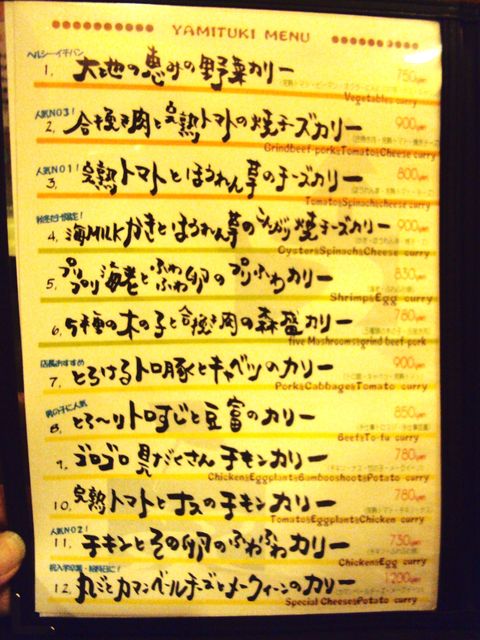 YAMITUKI MENU
ヘルシーイチバン
1. 大地の恵みの野菜カリー 750yen
Vegetables curry
人気NO3!
2. 合挽き肉と完熟トマトの焼チーズカリー 900yen
Grindbeef pork&Tomato&Cheese curry
人気NO1!
3. 完熟トマトとほうれん草のチーズカリー 800yen
Tomato&Spinach&Cheese curry
4. 海MILKかきとほうれん草の焼チーズカリー 900yen
Oyster&Spinach&Cheese curry
5. プリプリ海老とふわふわ卵のプリふわカリー 830yen
Shrimp&Egg curry
6. 5種の木の子と合挽き肉の森盛カリー 780yen
five Mashrooms&grind beef pork
店長おすすめ
7. とろけるトロ豚とキャベツのカリー 900yen
Pork&Cabbage&Tomato curry
男の子に人気
8. とろ〜りトロすじと豆富のカリー 850yen
Beef&To-fu curry
9. ゴロゴロ具だくさんチキンカリー 780yen
Chicken&Eggplant&Bambooshoot&Potato curry
10. 完熟トマトとナスのチキンカリー 780yen
Tomato&Eggplant&Chicken curry
人気NO2!
11. チキンとその卵のふわふわカリー 730yen
Chicken&Egg curry
12. 丸ごとカマンベールチーズとメークィーンのカリー 1200yen
Special Cheese&Potato curry